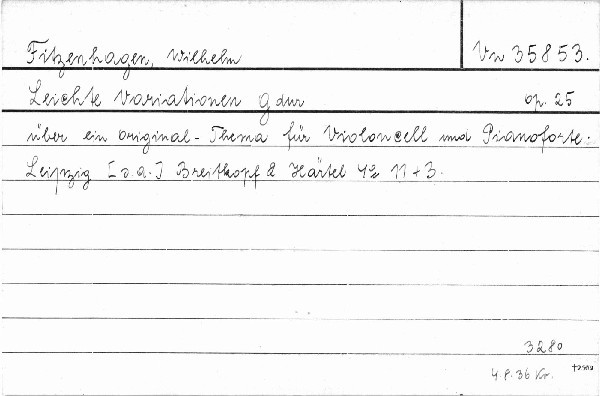 Fitzenhagen, Wilhelm
Vn 35853.
Leichte Variationen g dur op. 25
über ein Original-Thema für Violoncell und Pianoforte:
Leipzig [o.a.] Breitkopf & Härtel 4º 11+3.
3280
4.8.36 Kr.